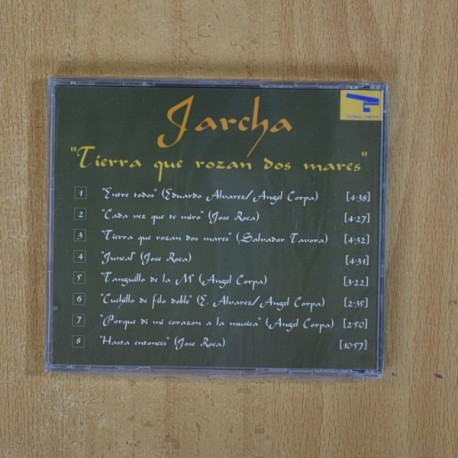 Jarcha
"Tierra que rozan dos mares"
1 "Entre todos" (Eduardo Alvarez/Angel Corpa) [4:38]
2 "Cada vez que te miro" (Jose Roca) [4:27]
3 "Tierra que rozan dos mares" (Salvador Tavora) [4:32]
4 "Juncal" (Jose Roca) [4:31]
5 "Tanguillo de la Mª" (Angel Corpa) [3:22]
6 "Cuchillo de filo doble" (E. Alvarez/Angel Corpa) [2:35]
7 "Porque di mi corazon a la musica" (Angel Corpa) [2:50]
8 "Hasta entonces" (Jose Roca) [10:57]